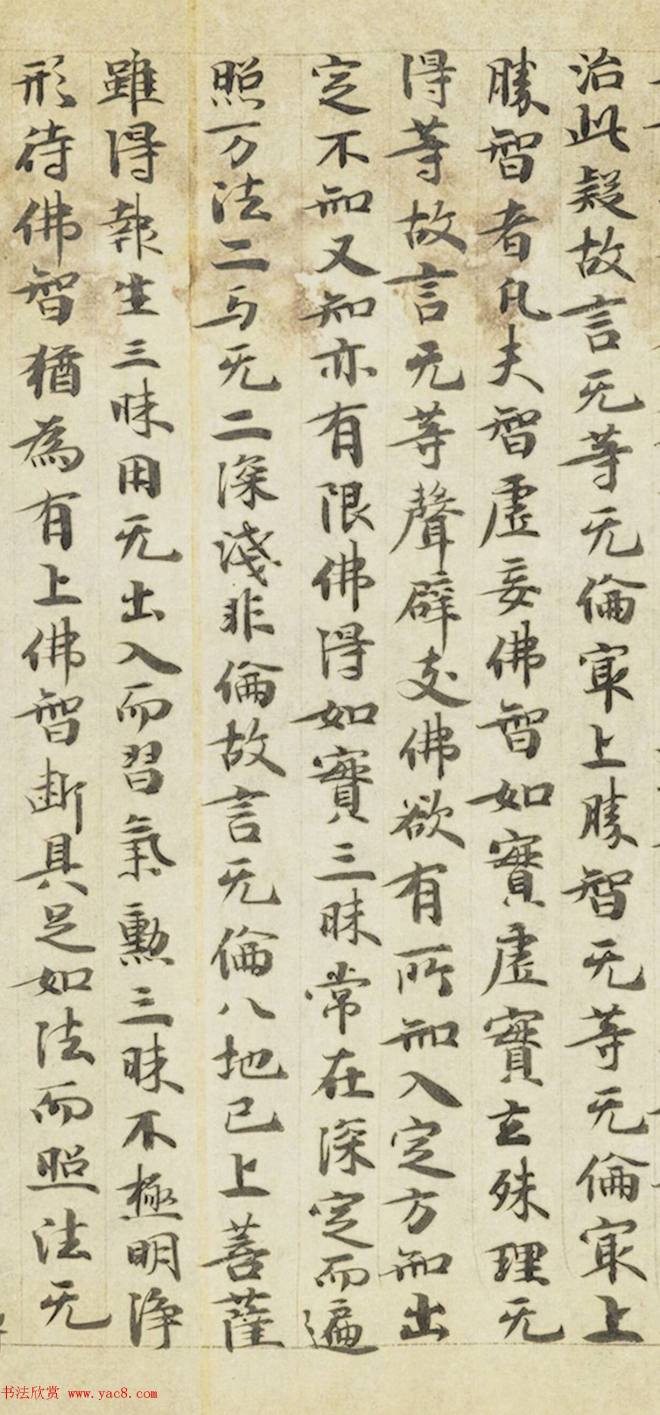 治此疑故言无等无倫冣上勝智无等无倫冣上
勝智者凡夫智虛妄佛智如實虛實玄殊理无
得等故言无等聲辟支佛欲有所知入定方知出
定不知又知亦有限佛得如實三昧常在深定而遍
照万法二与无二深淺非倫故言无倫八地已上菩薩
雖得報生三昧用无出入而習氣勳三昧不極明淨
形待佛智猶為有上佛智斷具足如法而照法无
书法欣赏 www.yac8.com